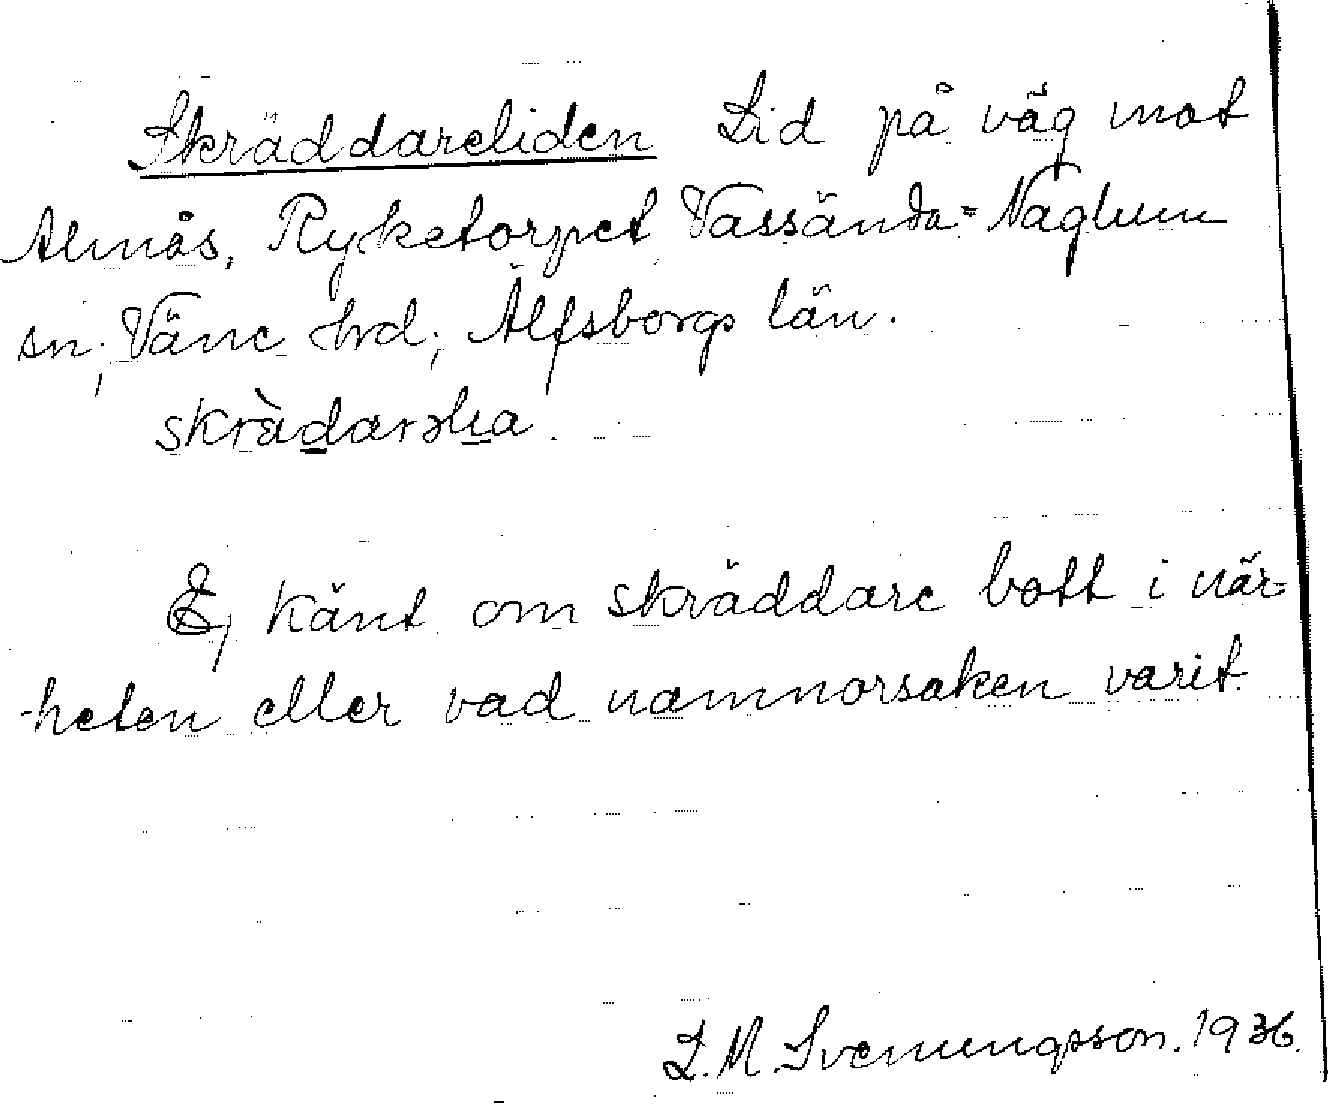 Skräddareliden Lid på väg mot
Almås, Ryketorpet Vassända=Naglum
sn; Väne hrd; Älfsborgs län.
skràdarəlɩa.
Ej känt om skräddare bott i när=
-heten eller vad namnorsaken varit.
L. M. Svenungsson. 1936.